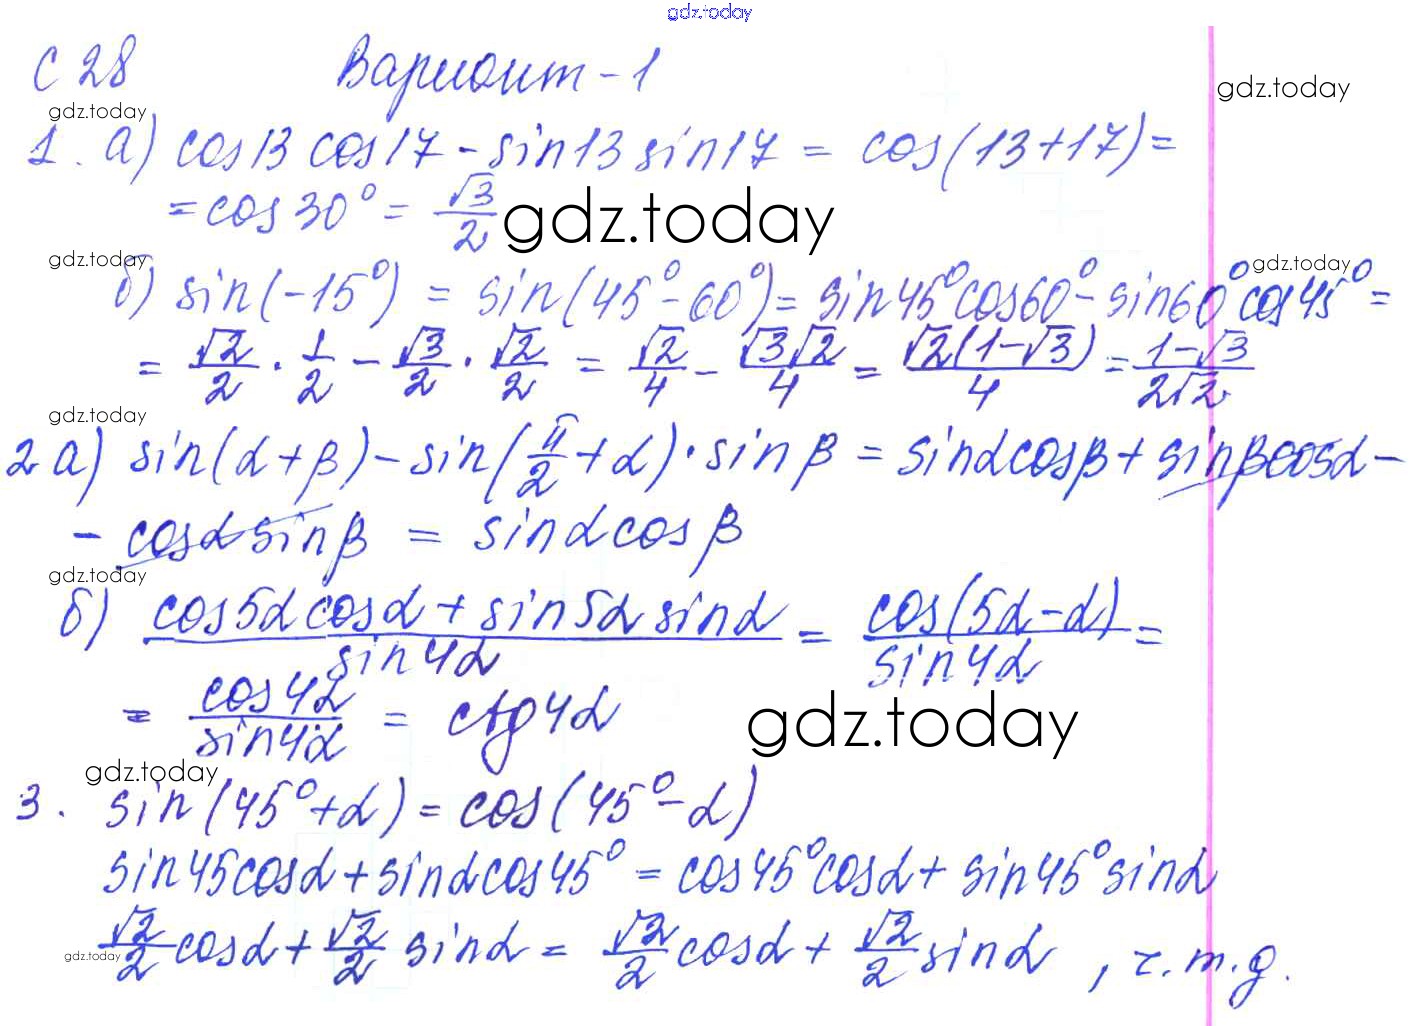 gdz.today
С 28 Вариант - 1
gdz.today
gdz.today
1. а) cos13 cos17 - sin13 sin17 = cos(13+17) =
= cos 30° = √3/2
gdz.today
gdz.today
gdz.today
б) sin(-15°) = sin(45°-60°) = sin45°cos60° - sin60°cos45° =
= √2/2 · 1/2 - √3/2 · √2/2 = √2/4 - √3√2/4 = √2(1-√3)/4 = 1-√3/2√2
gdz.today
2 а) sin(α+β) - sin(π/2+α) · sin β = sinαcosβ + sinβcosα -
- cosα sinβ = sinα cos β
gdz.today
б) cos5α cosα + sin5α sinα/sin4α = cos(5α-α)/sin4α =
= cos4α/sin4α = ctg4α
gdz.today
gdz.today
3. sin(45°+α) = cos(45°-α)
sin45cosα + sinαcos45° = cos45°cosα + sin45°sinα
√2/2 cosα + √2/2 sinα = √2/2 cosα + √2/2 sinα , ч.т.д.
gdz.today